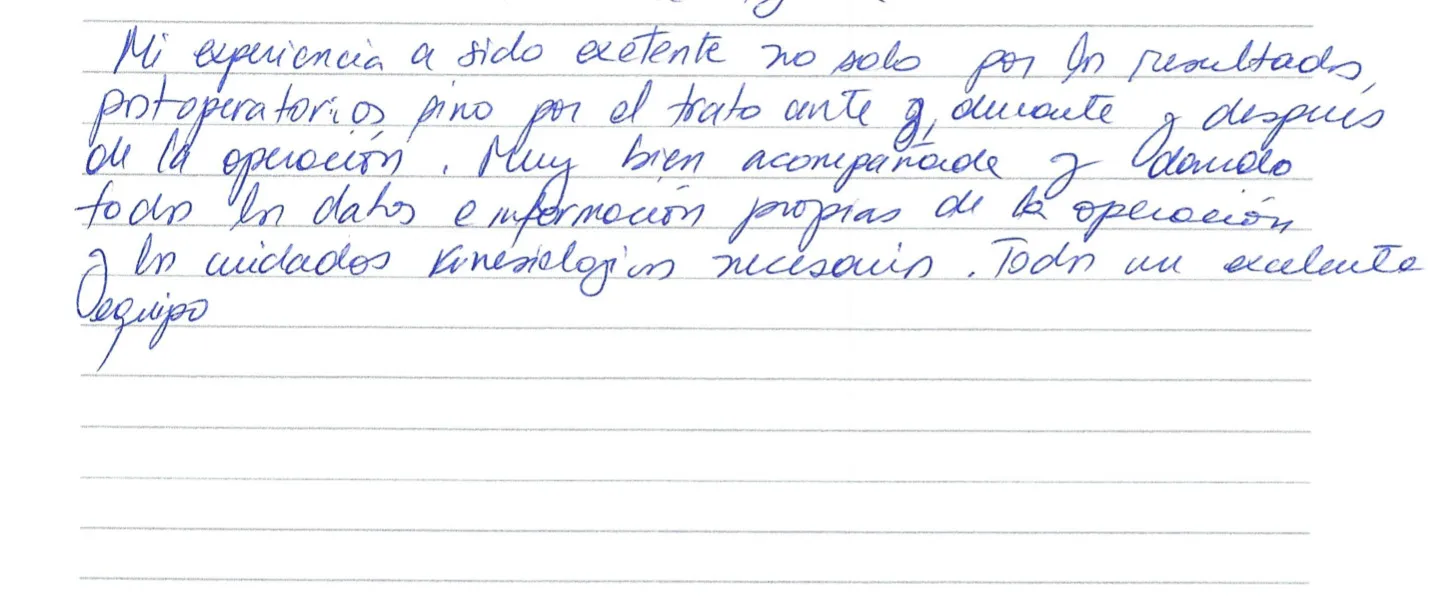 Mi experiencia a sido exelente no solo por los resultados
postoperatorios sino por el trato ante y, durante y después
de la operación. Muy bien acompañada y dando
todos los datos e información propias de la operación
y los cuidados kinesiologicos necesarios. Todo un excelente
equipo